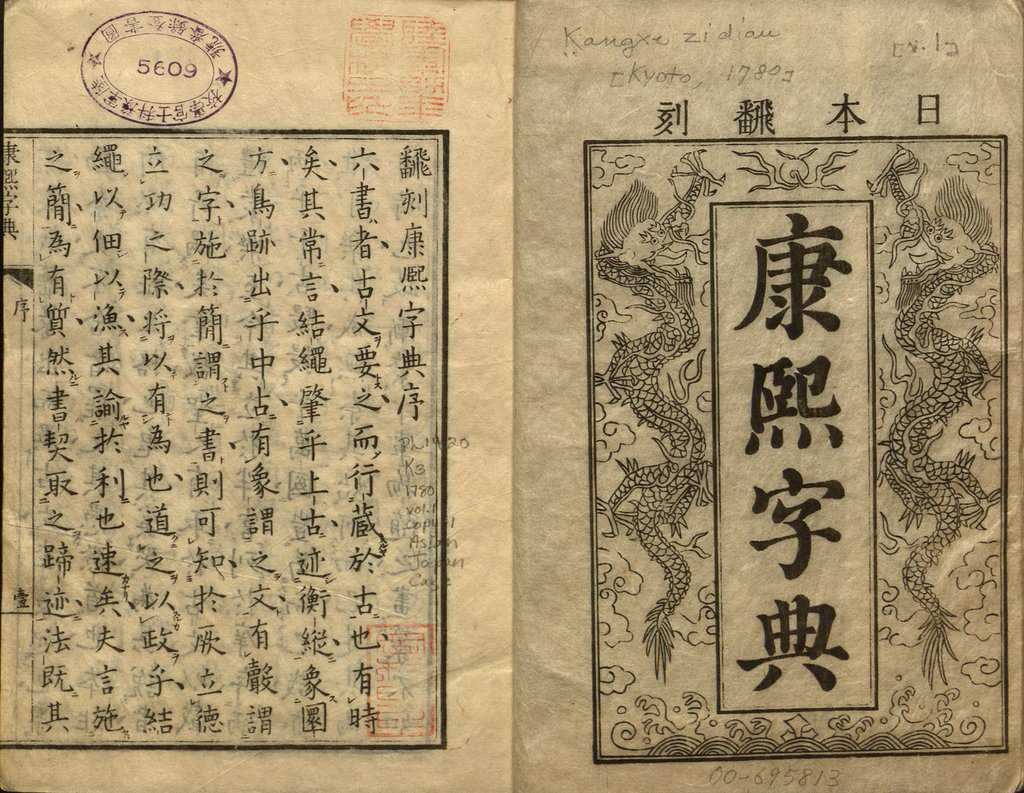 Kangxi zidian
[v.1]
[Kyoto, 1780]
日本飜刻
康熙字典
00-695813
飜刻康熙字典序
六書者古文要之而行藏於古也有時
矣其常言結繩肇乎上古迹衡縱象圜
方鳥跡出乎中古有象謂之文有聲謂
之字施於簡謂之書則可知於厥立德
立功之際將以有為也道之以政乎結
繩以佃以漁其諭於利也速矣夫言施
之簡為有質然書契取之蹄迹法既其
康熙字典
序
壹
PL1420
K3
1780
vol.1
copy 1
Asian
Japan
Cage
圖書登錄番號
5609
陸軍豫科士官學校